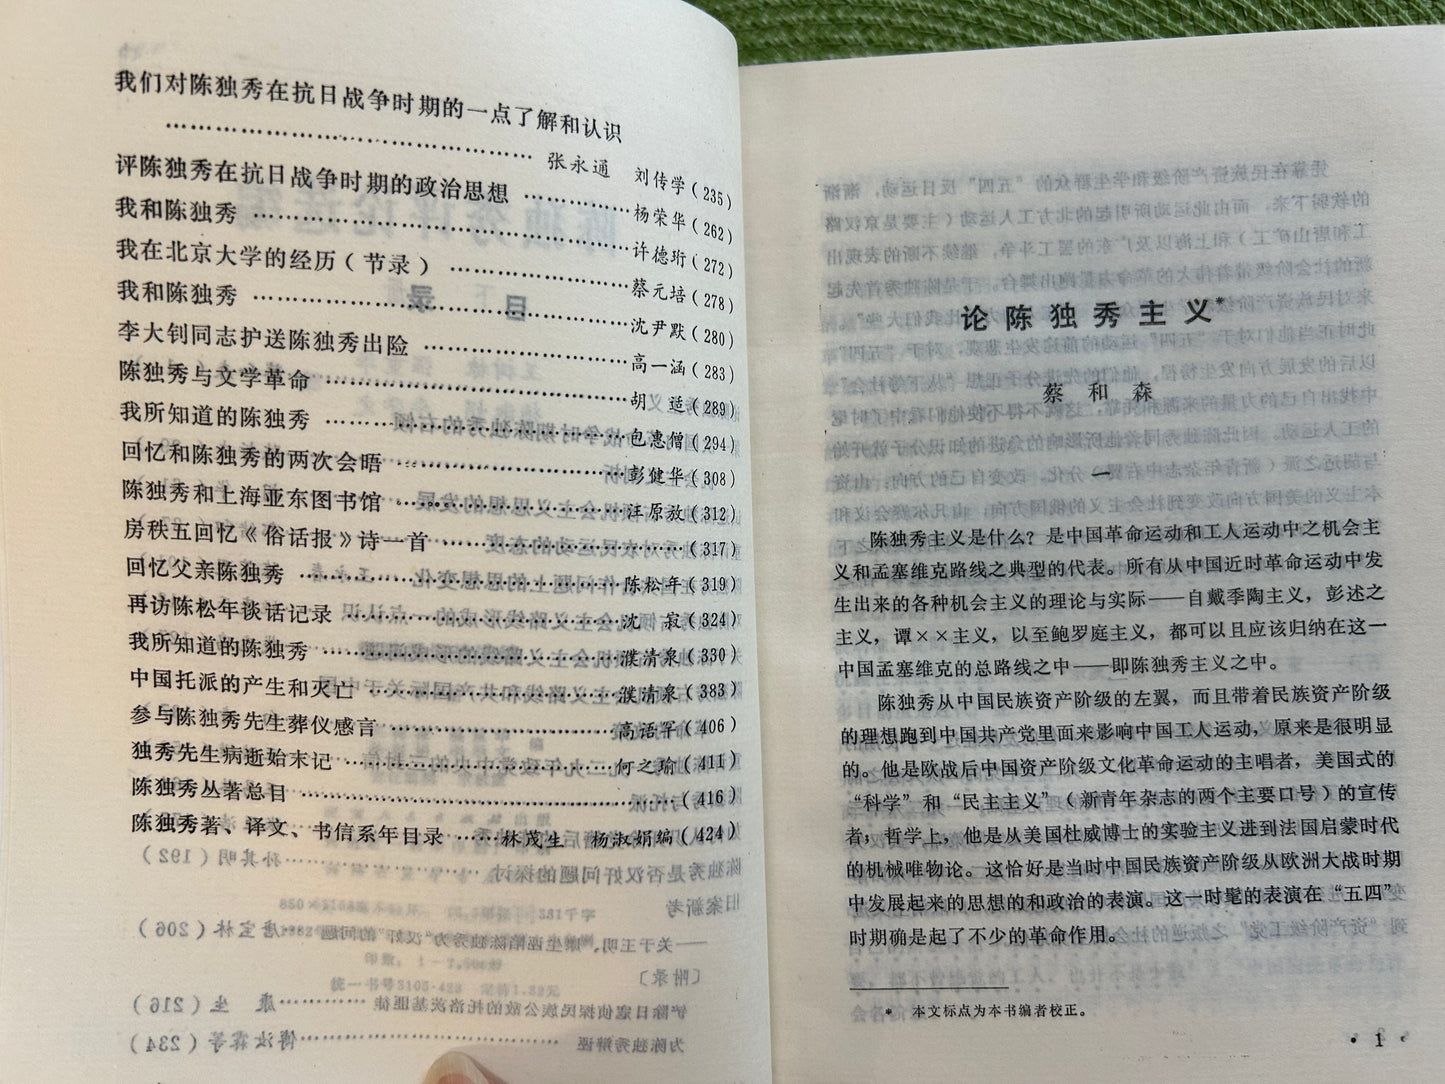 我们对陈独秀在抗日战争时期的一点了解和认识
……………………………………张永通 刘传学(235)
评陈独秀在抗日战争时期的政治思想 …………杨荣华(262)
我和陈独秀 ……………………………………许德珩(272)
我在北京大学的经历(节录) …………………蔡元培(278)
我和陈独秀 ……………………………………沈尹默(280)
李大钊同志护送陈独秀出险 …………………高一涵(283)
陈独秀与文学革命 ……………………………胡 适(289)
我所知道的陈独秀 ……………………………包惠僧(294)
回忆和陈独秀的两次会晤 ……………………彭健华(308)
陈独秀和上海亚东图书馆 ……………………汪原放(312)
房秩五回忆《俗话报》诗一首 …………………………(317)
回忆父亲陈独秀 ………………………………陈松年(319)
再访陈松年谈话记录 …………………………沈 寂(324)
我所知道的陈独秀 ……………………………濮清泉(330)
中国托派的产生和灭亡 ………………………濮清泉(383)
参与陈独秀先生葬仪感言 ……………………高语罕(406)
独秀先生病逝始末记 …………………………何之瑜(411)
陈独秀丛著总目 ………………………………………(416)
陈独秀著、译文、书信系年目录 ……林茂生 杨淑娟编(424)
论陈独秀主义*
蔡和森
一
陈独秀主义是什么?是中国革命运动和工人运动中之机会主
义和孟塞维克路线之典型的代表。所有从中国近时革命运动中发
生出来的各种机会主义的理论与实际——自戴季陶主义,彭述之
主义,谭××主义,以至鲍罗庭主义,都可以且应该归纳在这一
中国孟塞维克的总路线之中——即陈独秀主义之中。
陈独秀从中国民族资产阶级的左翼,而且带着民族资产阶级
的理想跑到中国共产党里面来影响中国工人运动,原来是很明显
的。他是欧战后中国资产阶级文化革命运动的主唱者,美国式的
“科学”和“民主主义”(新青年杂志的两个主要口号)的宣传
者;哲学上,他是从美国杜威博士的实验主义进到法国启蒙时代
的机械唯物论。这恰好是当时中国民族资产阶级从欧洲大战时期
中发展起来的思想的和政治的表演。这一时髦的表演在“五四”
时期确是起了不少的革命作用。
* 本文标点为本书编者校正。
· 1 ·